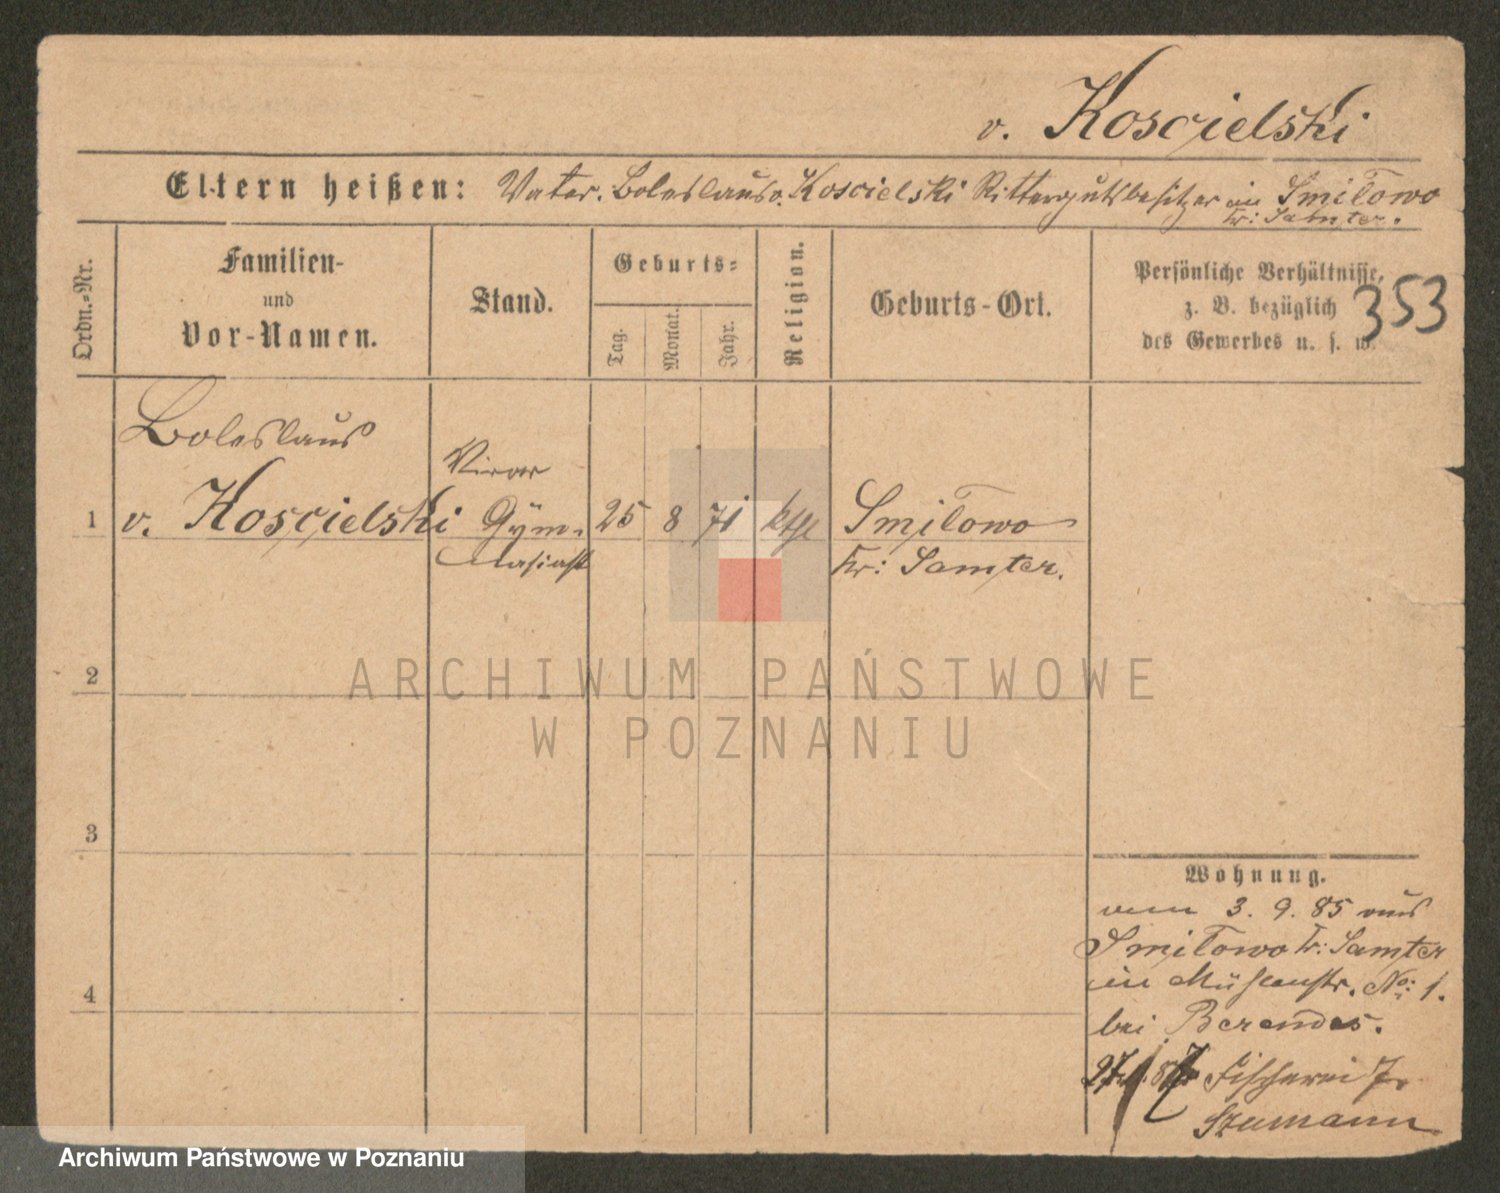 v. Koscielski
Eltern heißen: Vater. Boleslaus v. Koscielski Rittergutsbesitzer in Smilowo
Kr: Samter.
Ordn.-Nr.
Familien-
und
Vor-Namen.
Stand.
Geburts-
Tag.
Monat.
Jahr.
Religion.
Geburts-Ort.
Persönliche Verhältnisse,
z. B. bezüglich
des Gewerbes u. s. w.
353
Boleslaus
1 v. Koscielski Gym- 25 8 71 kth Smilowo
nasiast Kr: Samter.
2
3
4
Wohnung.
vom 3. 9. 85 aus
Smilowo Kr: Samter
in Mühlenstr. No: 1.
bei Berendes.
Fischerei 7
Szumann
ARCHIWUM PAŃSTWOWE
W POZNANIU
Archiwum Państwowe w Poznaniu